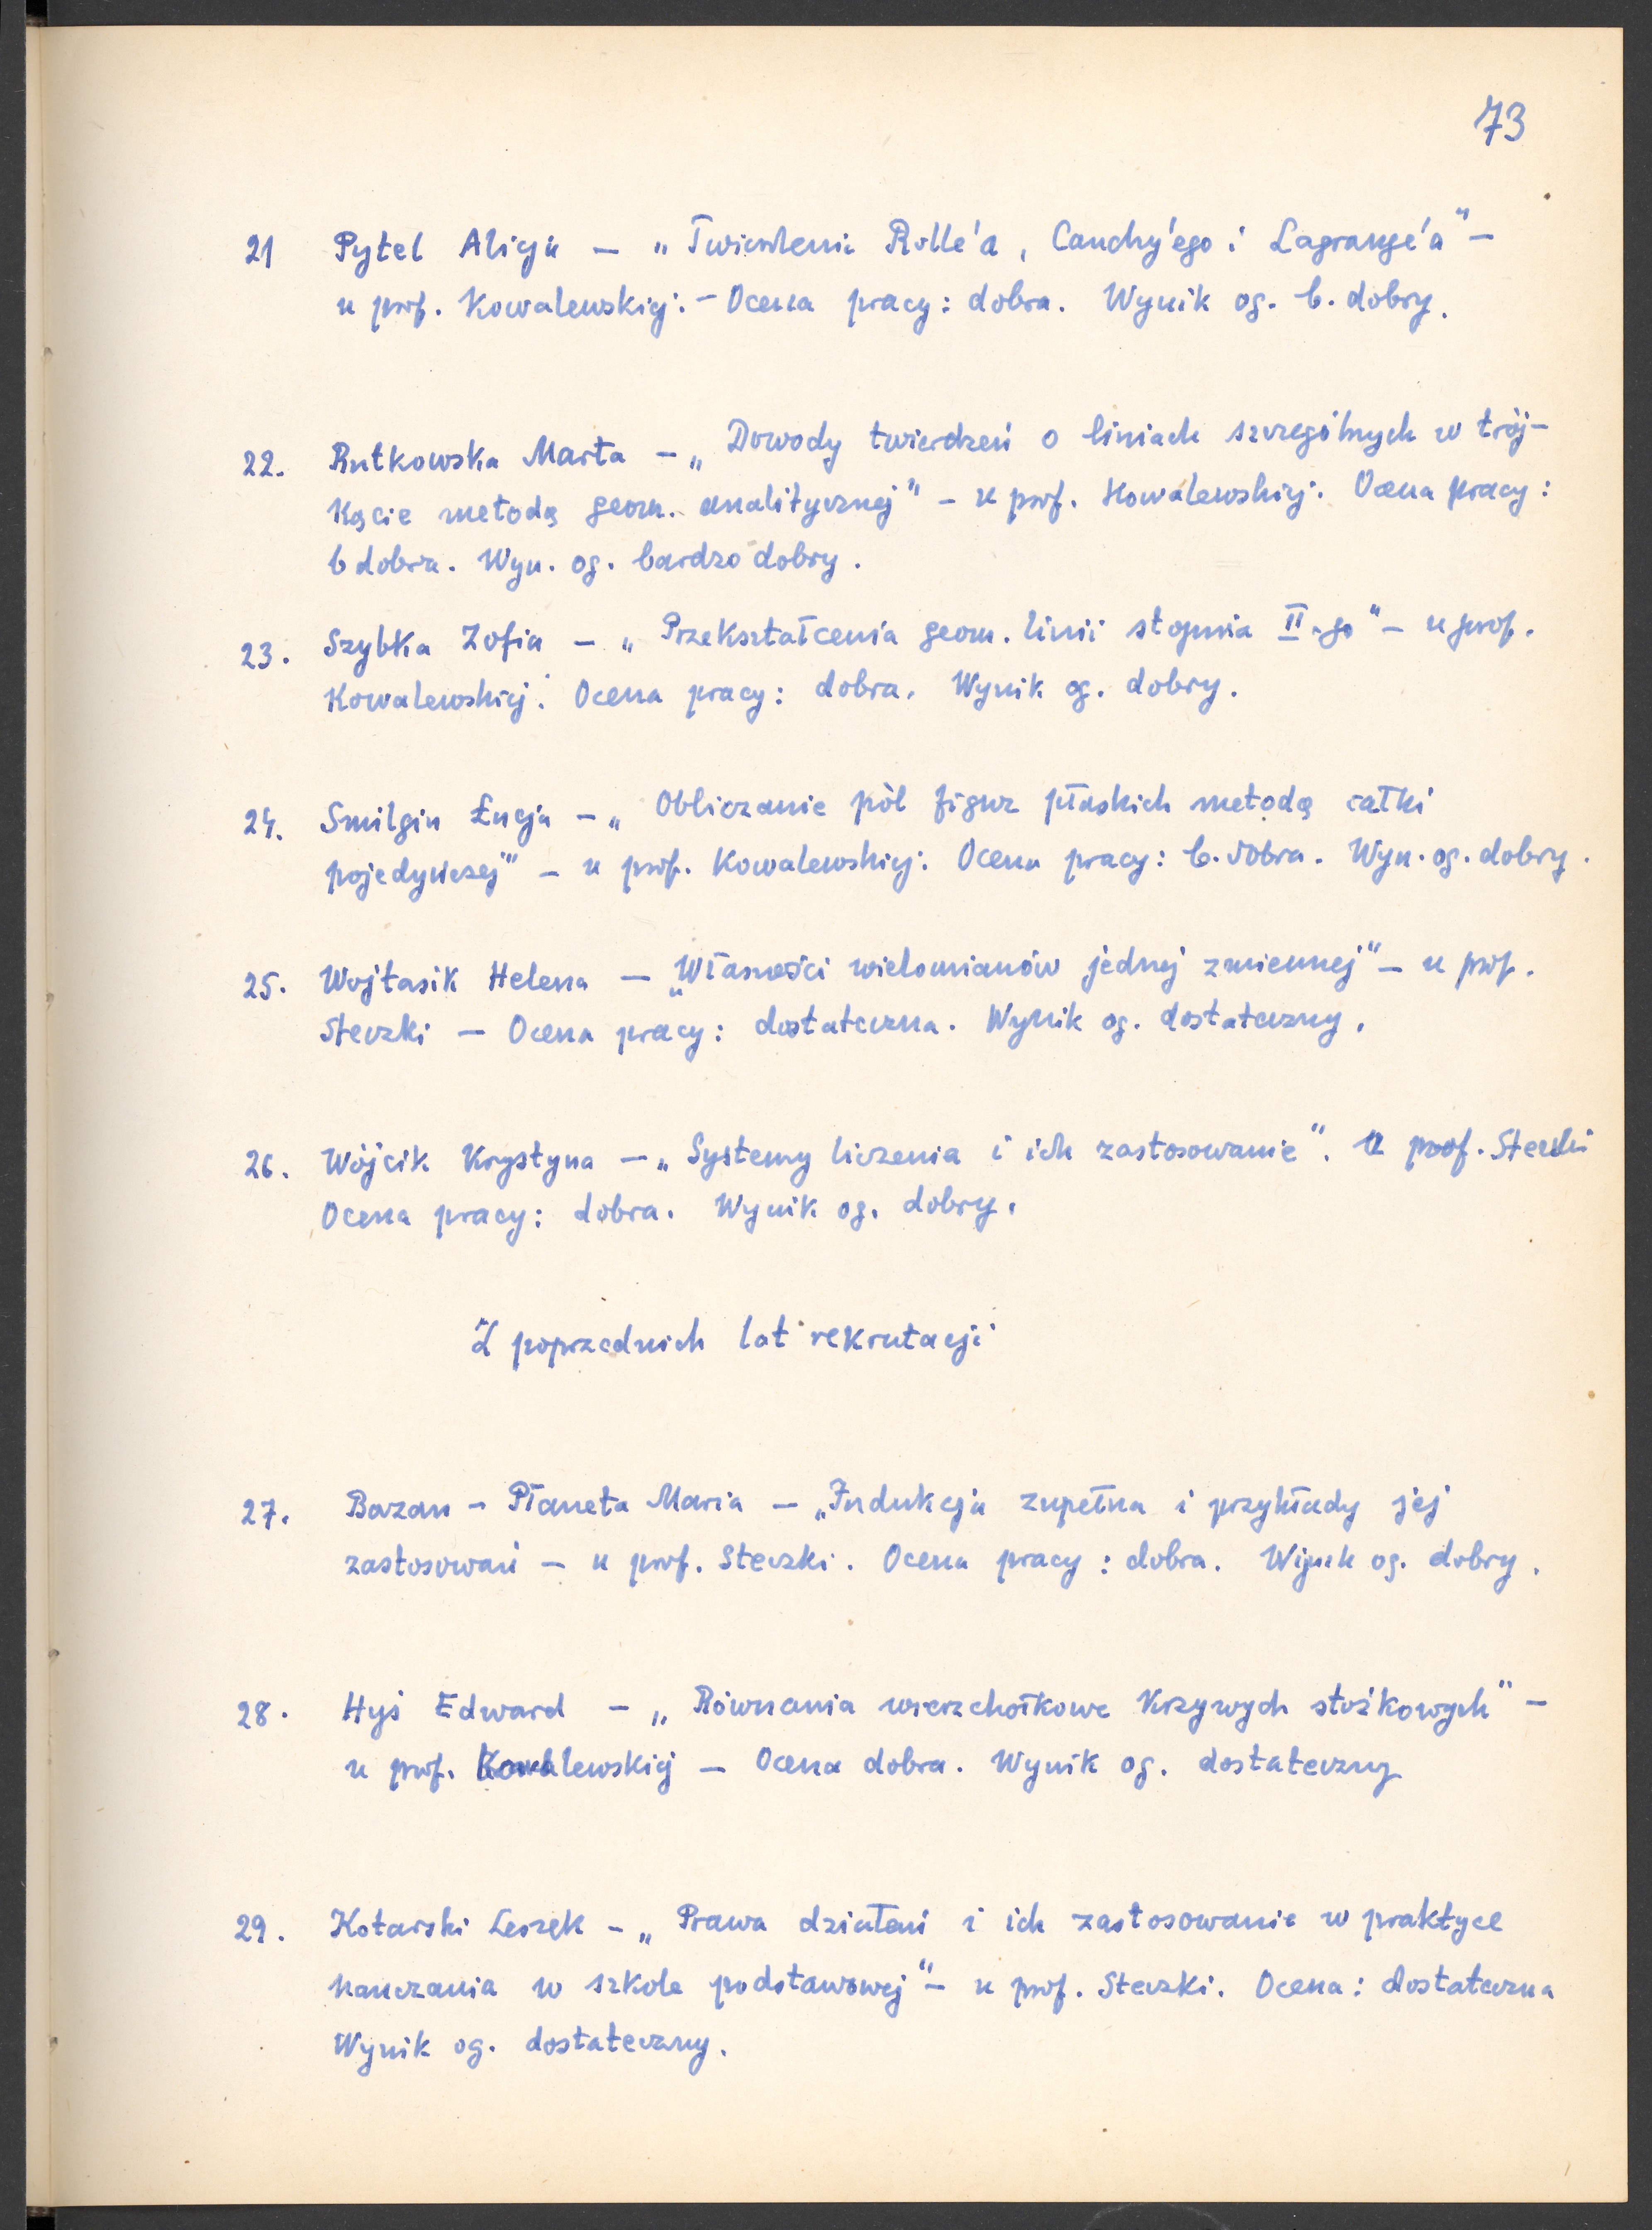 73
21 Pytel Alicja — „Twierdzenie Rolle'a, Cauchy'ego i Lagrange'a” —
u prof. Kowalewskiej. — Ocena pracy: dobra. Wynik og. b. dobry.
22. Rutkowska Marta — „Dowody twierdzeń o liniach szczególnych w trój-
kącie metodą geom. analitycznej” — u prof. Kowalewskiej. Ocena pracy:
b dobra. Wyn. og. bardzo dobry.
23. Szybka Zofia — „Przekształcenia geom. linii stopnia II-go” — u prof.
Kowalewskiej. Ocena pracy: dobra. Wynik og. dobry.
24. Smilgin Łucja — „Obliczanie pól figur płaskich metodą całki
pojedynczej” — u prof. Kowalewskiej. Ocena pracy: b. dobra. Wyn. og. dobry.
25. Wojtasik Helena — „Własności wielomianów jednej zmiennej” — u prof.
Steczki — Ocena pracy: dostateczna. Wynik og. dostateczny.
26. Wójcik Krystyna — „Systemy liczenia i ich zastosowanie”. u prof. Steczki
Ocena pracy: dobra. Wynik og. dobry.
Z poprzednich lat rekrutacji
27. Bazan — Płaneta Maria — „Indukcja zupełna i przykłady jej
zastosowań — u prof. Steczki. Ocena pracy: dobra. Wynik og. dobry.
28. Hyś Edward — „Równania wierzchołkowe krzywych stożkowych” —
u prof. Kowalewskiej — Ocena dobra. Wynik og. dostateczny
29. Kotarski Leszek — „Prawa działań i ich zastosowanie w praktyce
nauczania w szkole podstawowej” — u prof. Steczki. Ocena: dostateczna
Wynik og. dostateczny.